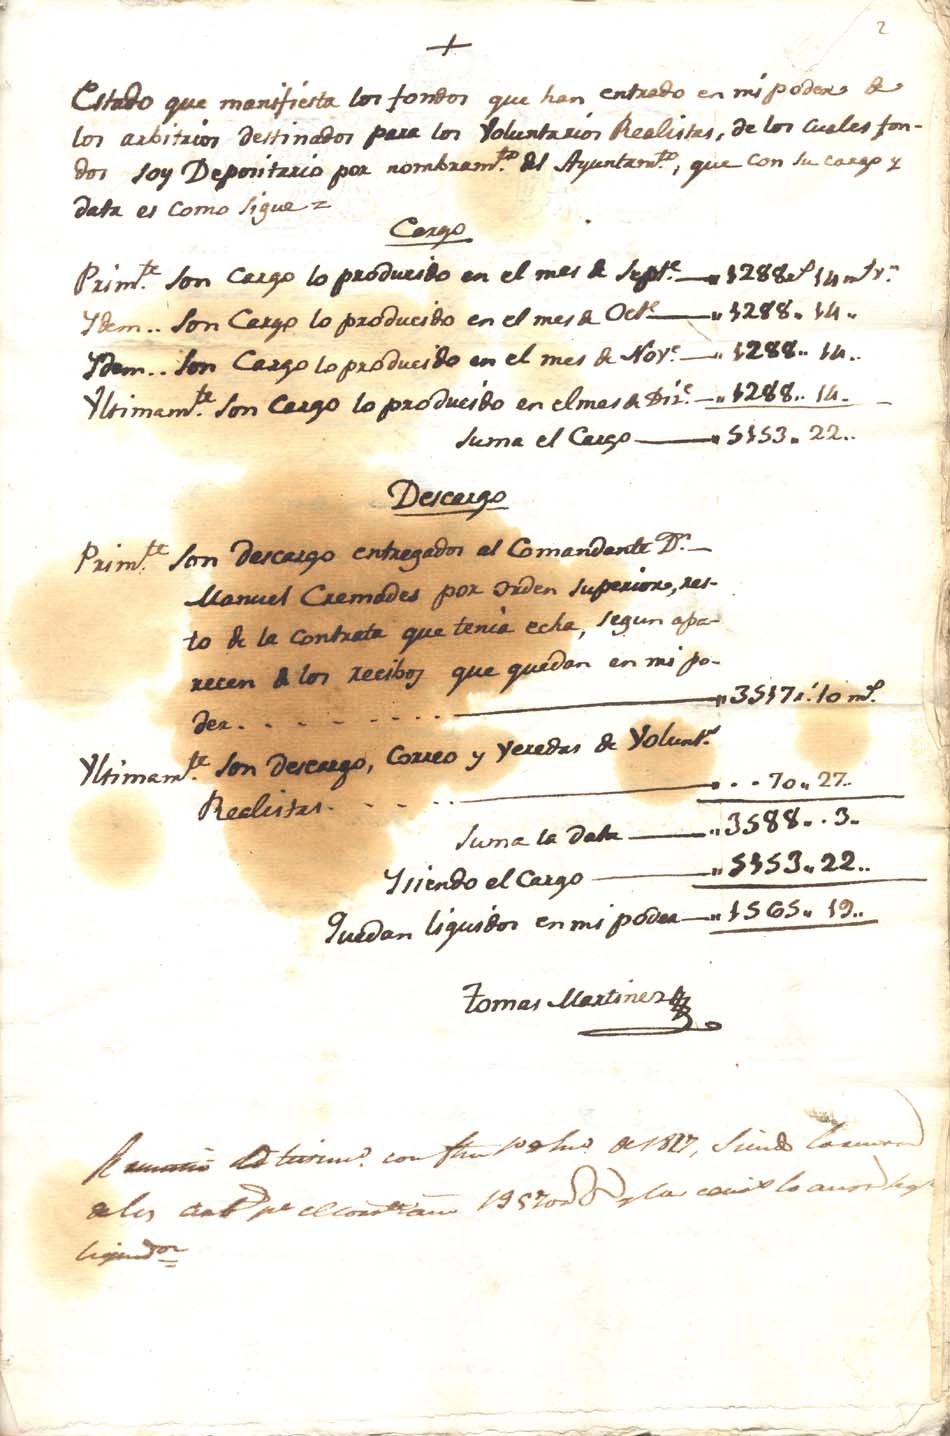 2
+
Estado que manifiesta los fondos que han entrado en mi poder de
los arbitrios destinados para los Voluntarios Realistas, de los cuales fon-
dos soy Depositario por nombram.to del Ayuntam.to, que con su cargo y
data es como sigue =
Cargo
Prim.te son Cargo lo producido en el mes de Sept.e — „ 1288 r.s 14 mrv.s
Ydem.. son Cargo lo producido en el mes de Oct.e — „ 1288 „ 14 „
Ydem.. son Cargo lo producido en el mes de Nov.e — „ 1288 „ 14 „
Yltimam.te son Cargo lo producido en el mes de Dir.e — „ 1288 „ 14 „
Suma el Cargo — „ 5153 „ 22 „
Descargo
Prim.te son descargo entregados al Comandante D.n —
Manuel Cremades por orden superior, res-
to de la contrata que tenia echa, segun apa-
recen de los recibos que quedan en mi po-
der. . . . . . . . — „ 3517 r.s 10 m.s
Yltimam.te son descargo, Correo y Veredas de Volunt.s
Realistas. . . . . — „ . . 70 „ 27 „
Suma la data — „ 3588 „ . 3 „
Ysiendo el Cargo — „ 5153 „ 22 „
Quedan liquidos en mi poder — „ 1565 „ 19 „
Tomas Martinez
de 1827, siendo
de los